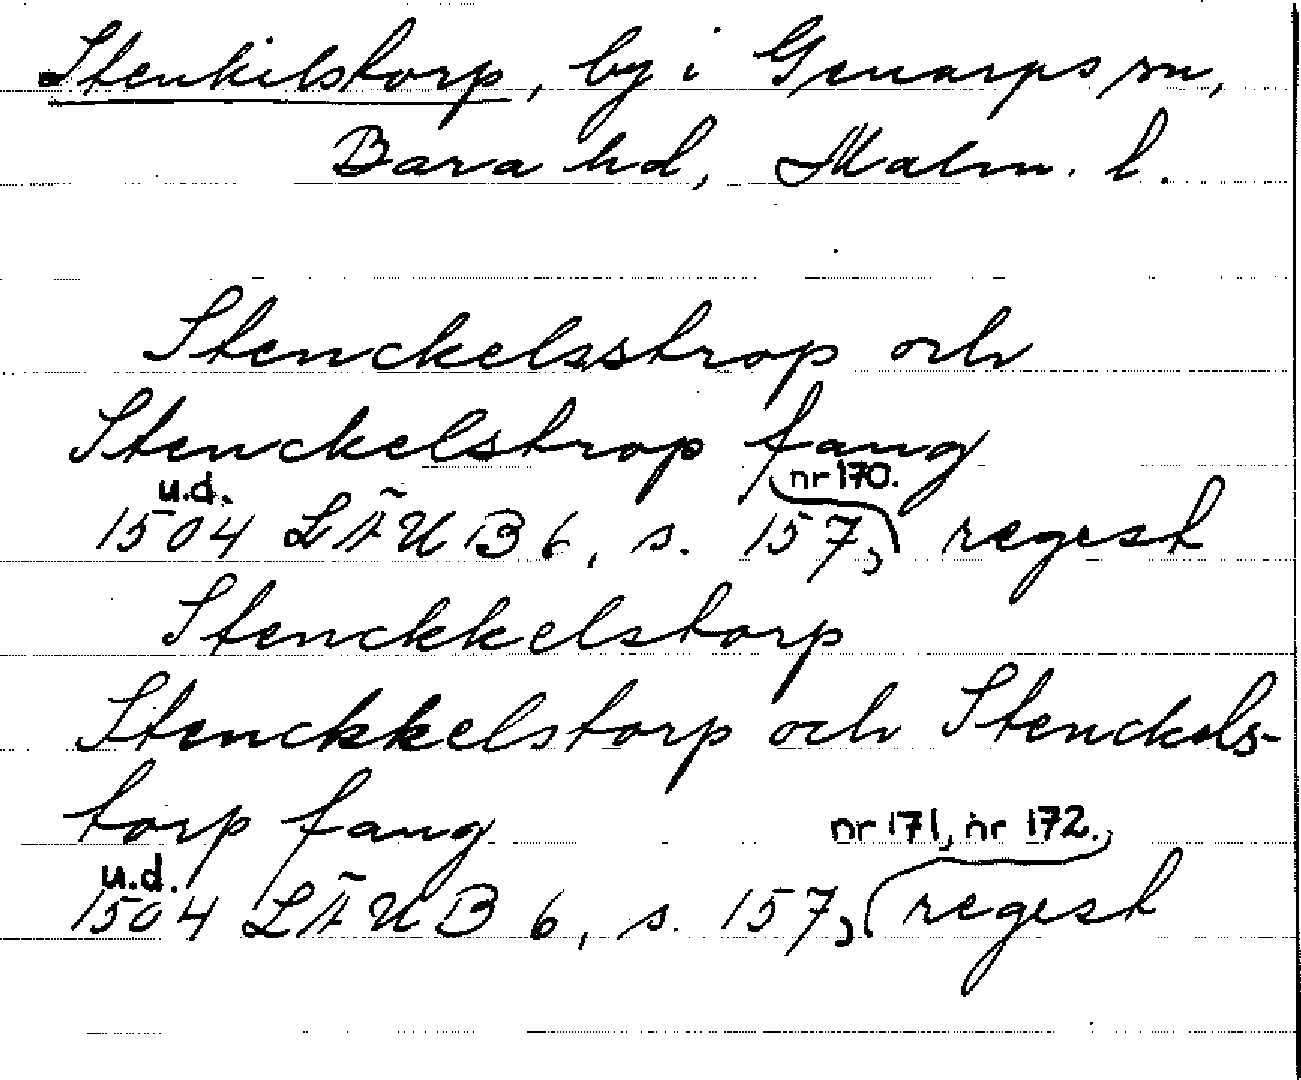 Stenkilstorp, by i Genarps sn,
Bara hd, Malm. l.
Stenckelsstrop och
Stenckelstrop fang
u.d. nr 170.
1504 LÄUB 6, s. 157, regest
Stenckkelstorp
Stenckkelstorp och Stenckels-
torp fang
nr 171, nr 172.
u.d.
1504 LÄUB 6, s. 157, regest